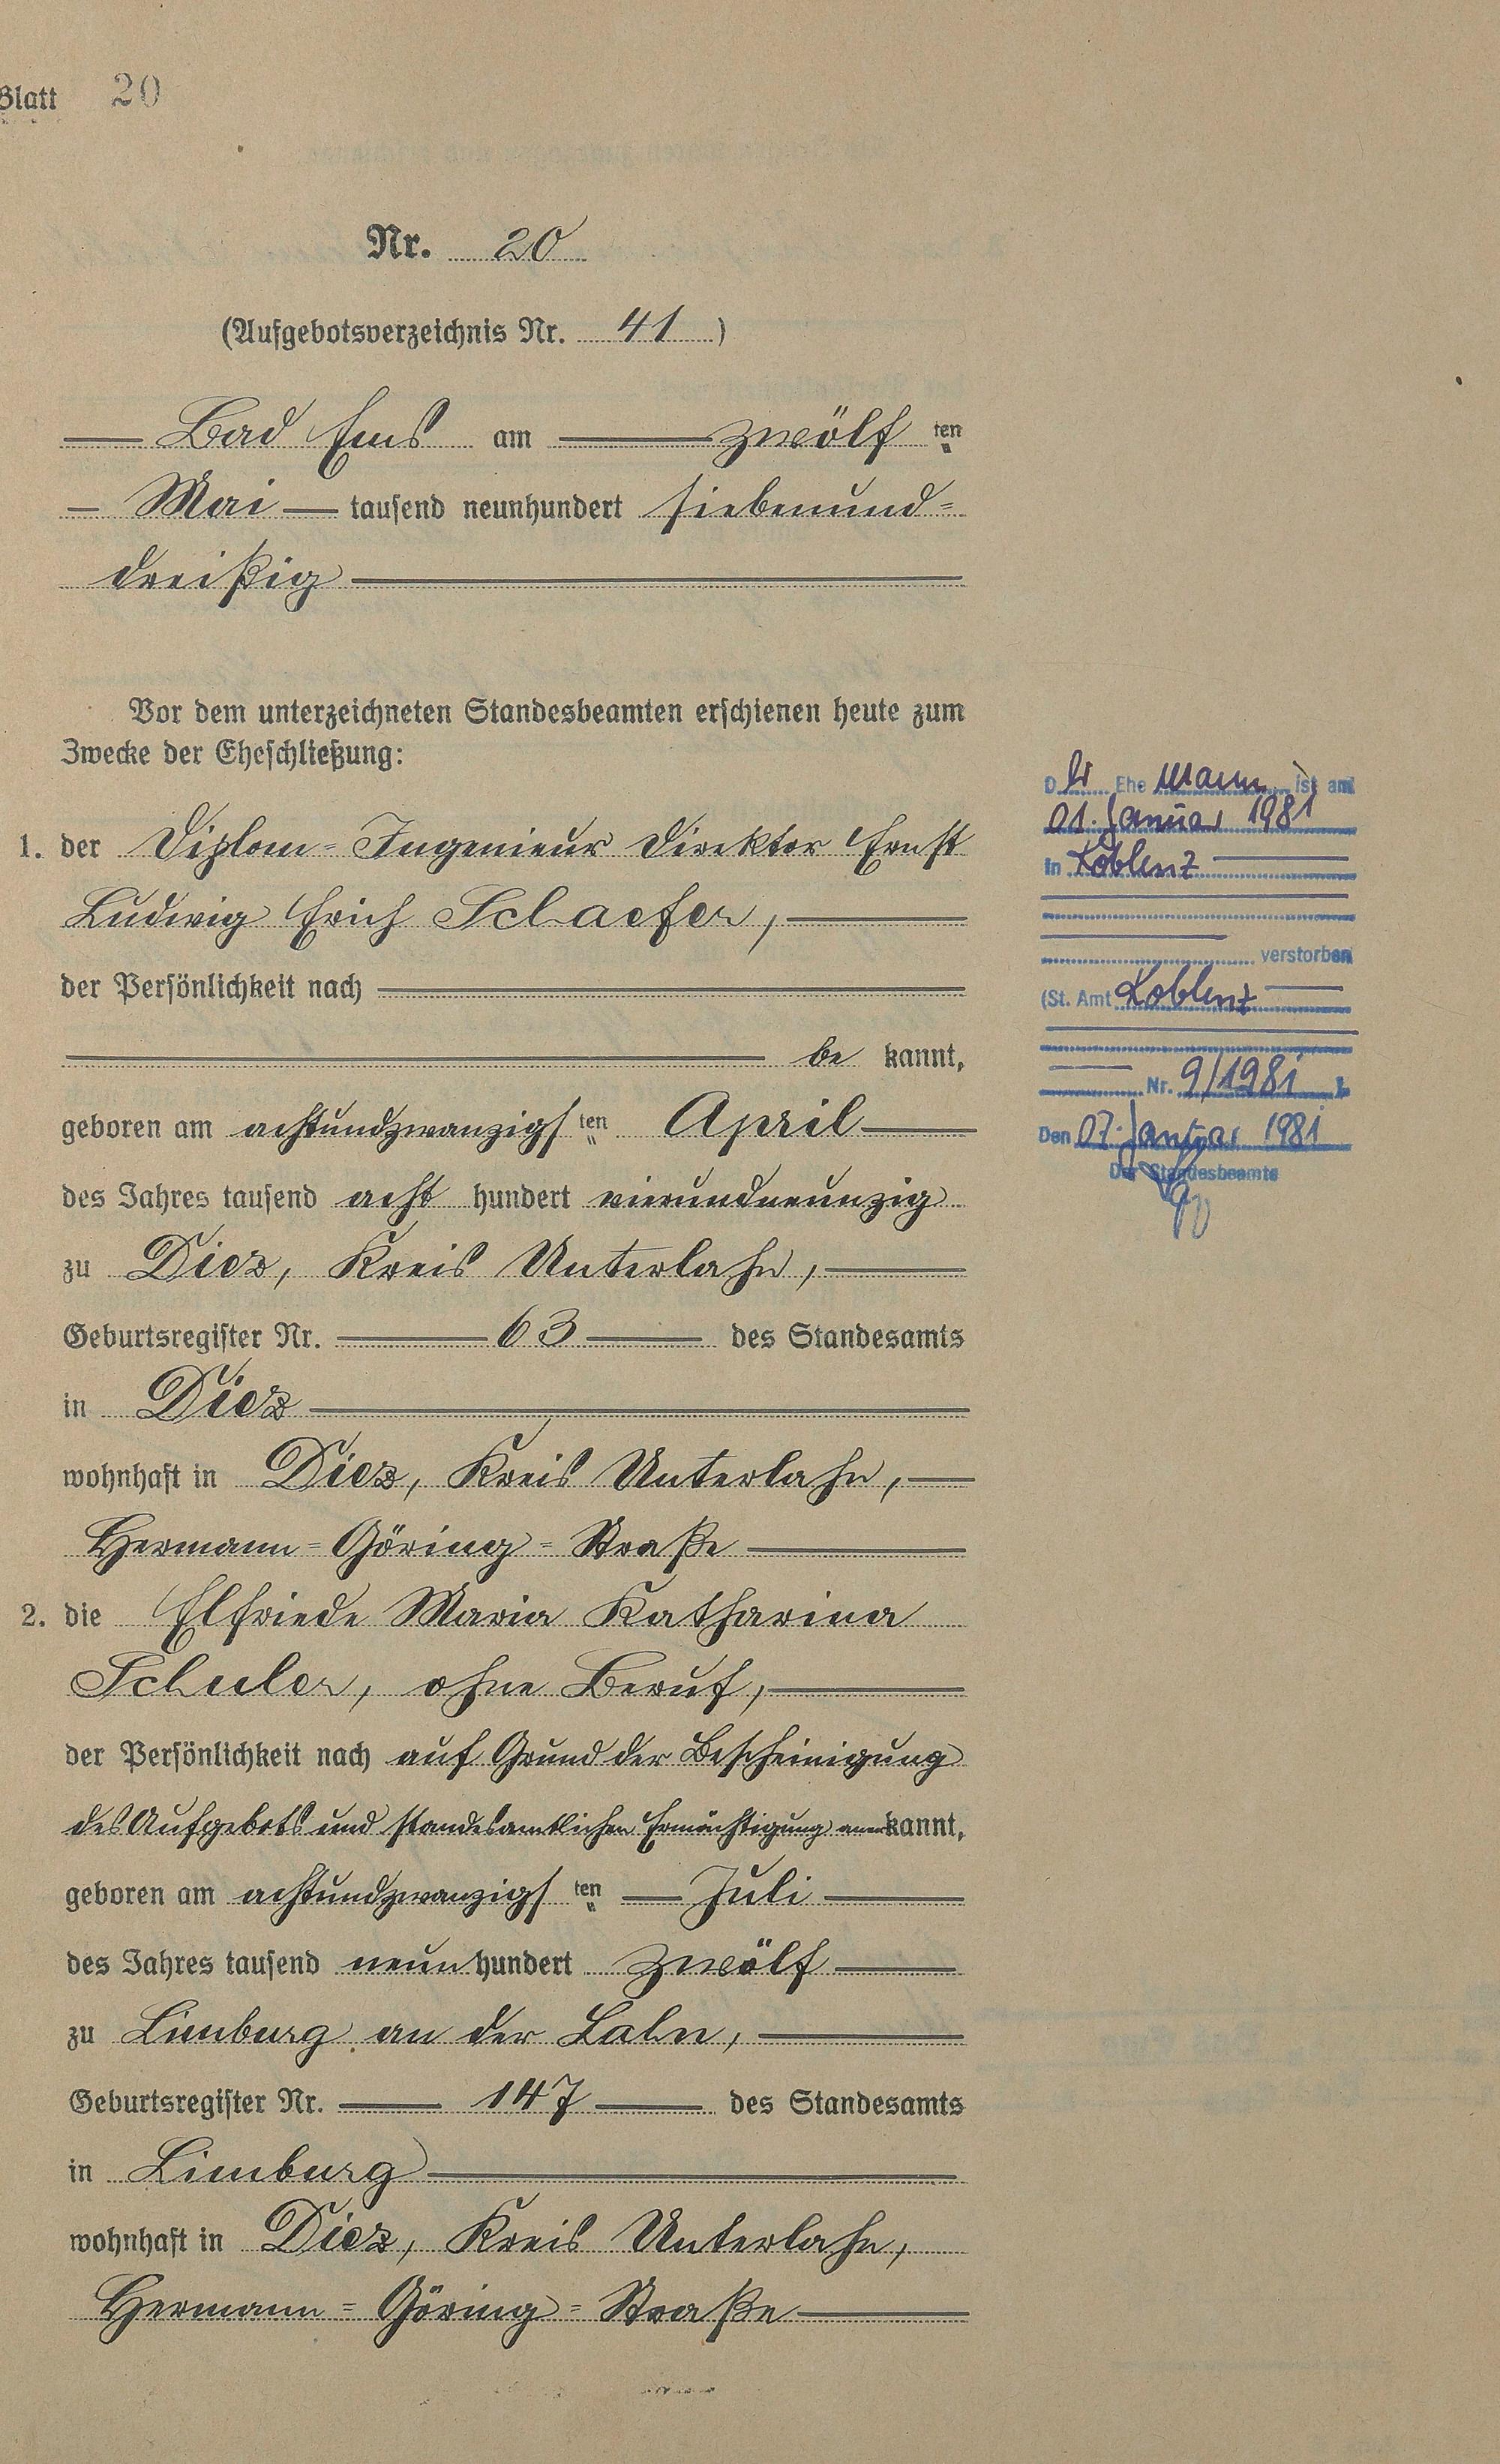 Blatt 20
Nr. 20
(Aufgebotsverzeichnis Nr. 41)
Bad Ems am zwölf ten
Mai tausend neunhundert siebenund=
dreißig
Vor dem unterzeichneten Standesbeamten erschienen heute zum
Zwecke der Eheschließung:
1. der Diplom=Ingenieur Direktor Ernst
Ludwig Erich Schaefer,
der Persönlichkeit nach
be kannt,
geboren am achtundzwanzigs ten April
des Jahres tausend acht hundert vierundneunzig
zu Diez, Kreis Unterlahn,
Geburtsregister Nr. 63 des Standesamts
in Diez
wohnhaft in Diez, Kreis Unterlahn,
Hermann=Göring=Straße
2. die Elfriede Maria Katharina
Schuler, ohne Beruf,
der Persönlichkeit nach auf Grund der Bescheinigung
des Aufgebots und standesamtlichen Ermächtigung anerkannt,
geboren am achtundzwanzigs ten Juli
des Jahres tausend neun hundert zwölf
zu Limburg an der Lahn,
Geburtsregister Nr. 147 des Standesamts
in Limburg
wohnhaft in Diez, Kreis Unterlahn,
Hermann=Göring=Straße
Der Ehe Mann ist am
01. Januar 1981
in Koblenz
verstorben
(St. Amt Koblenz
Nr. 9/1981 ).
Den 07. Januar 1981
Der Standesbeamte